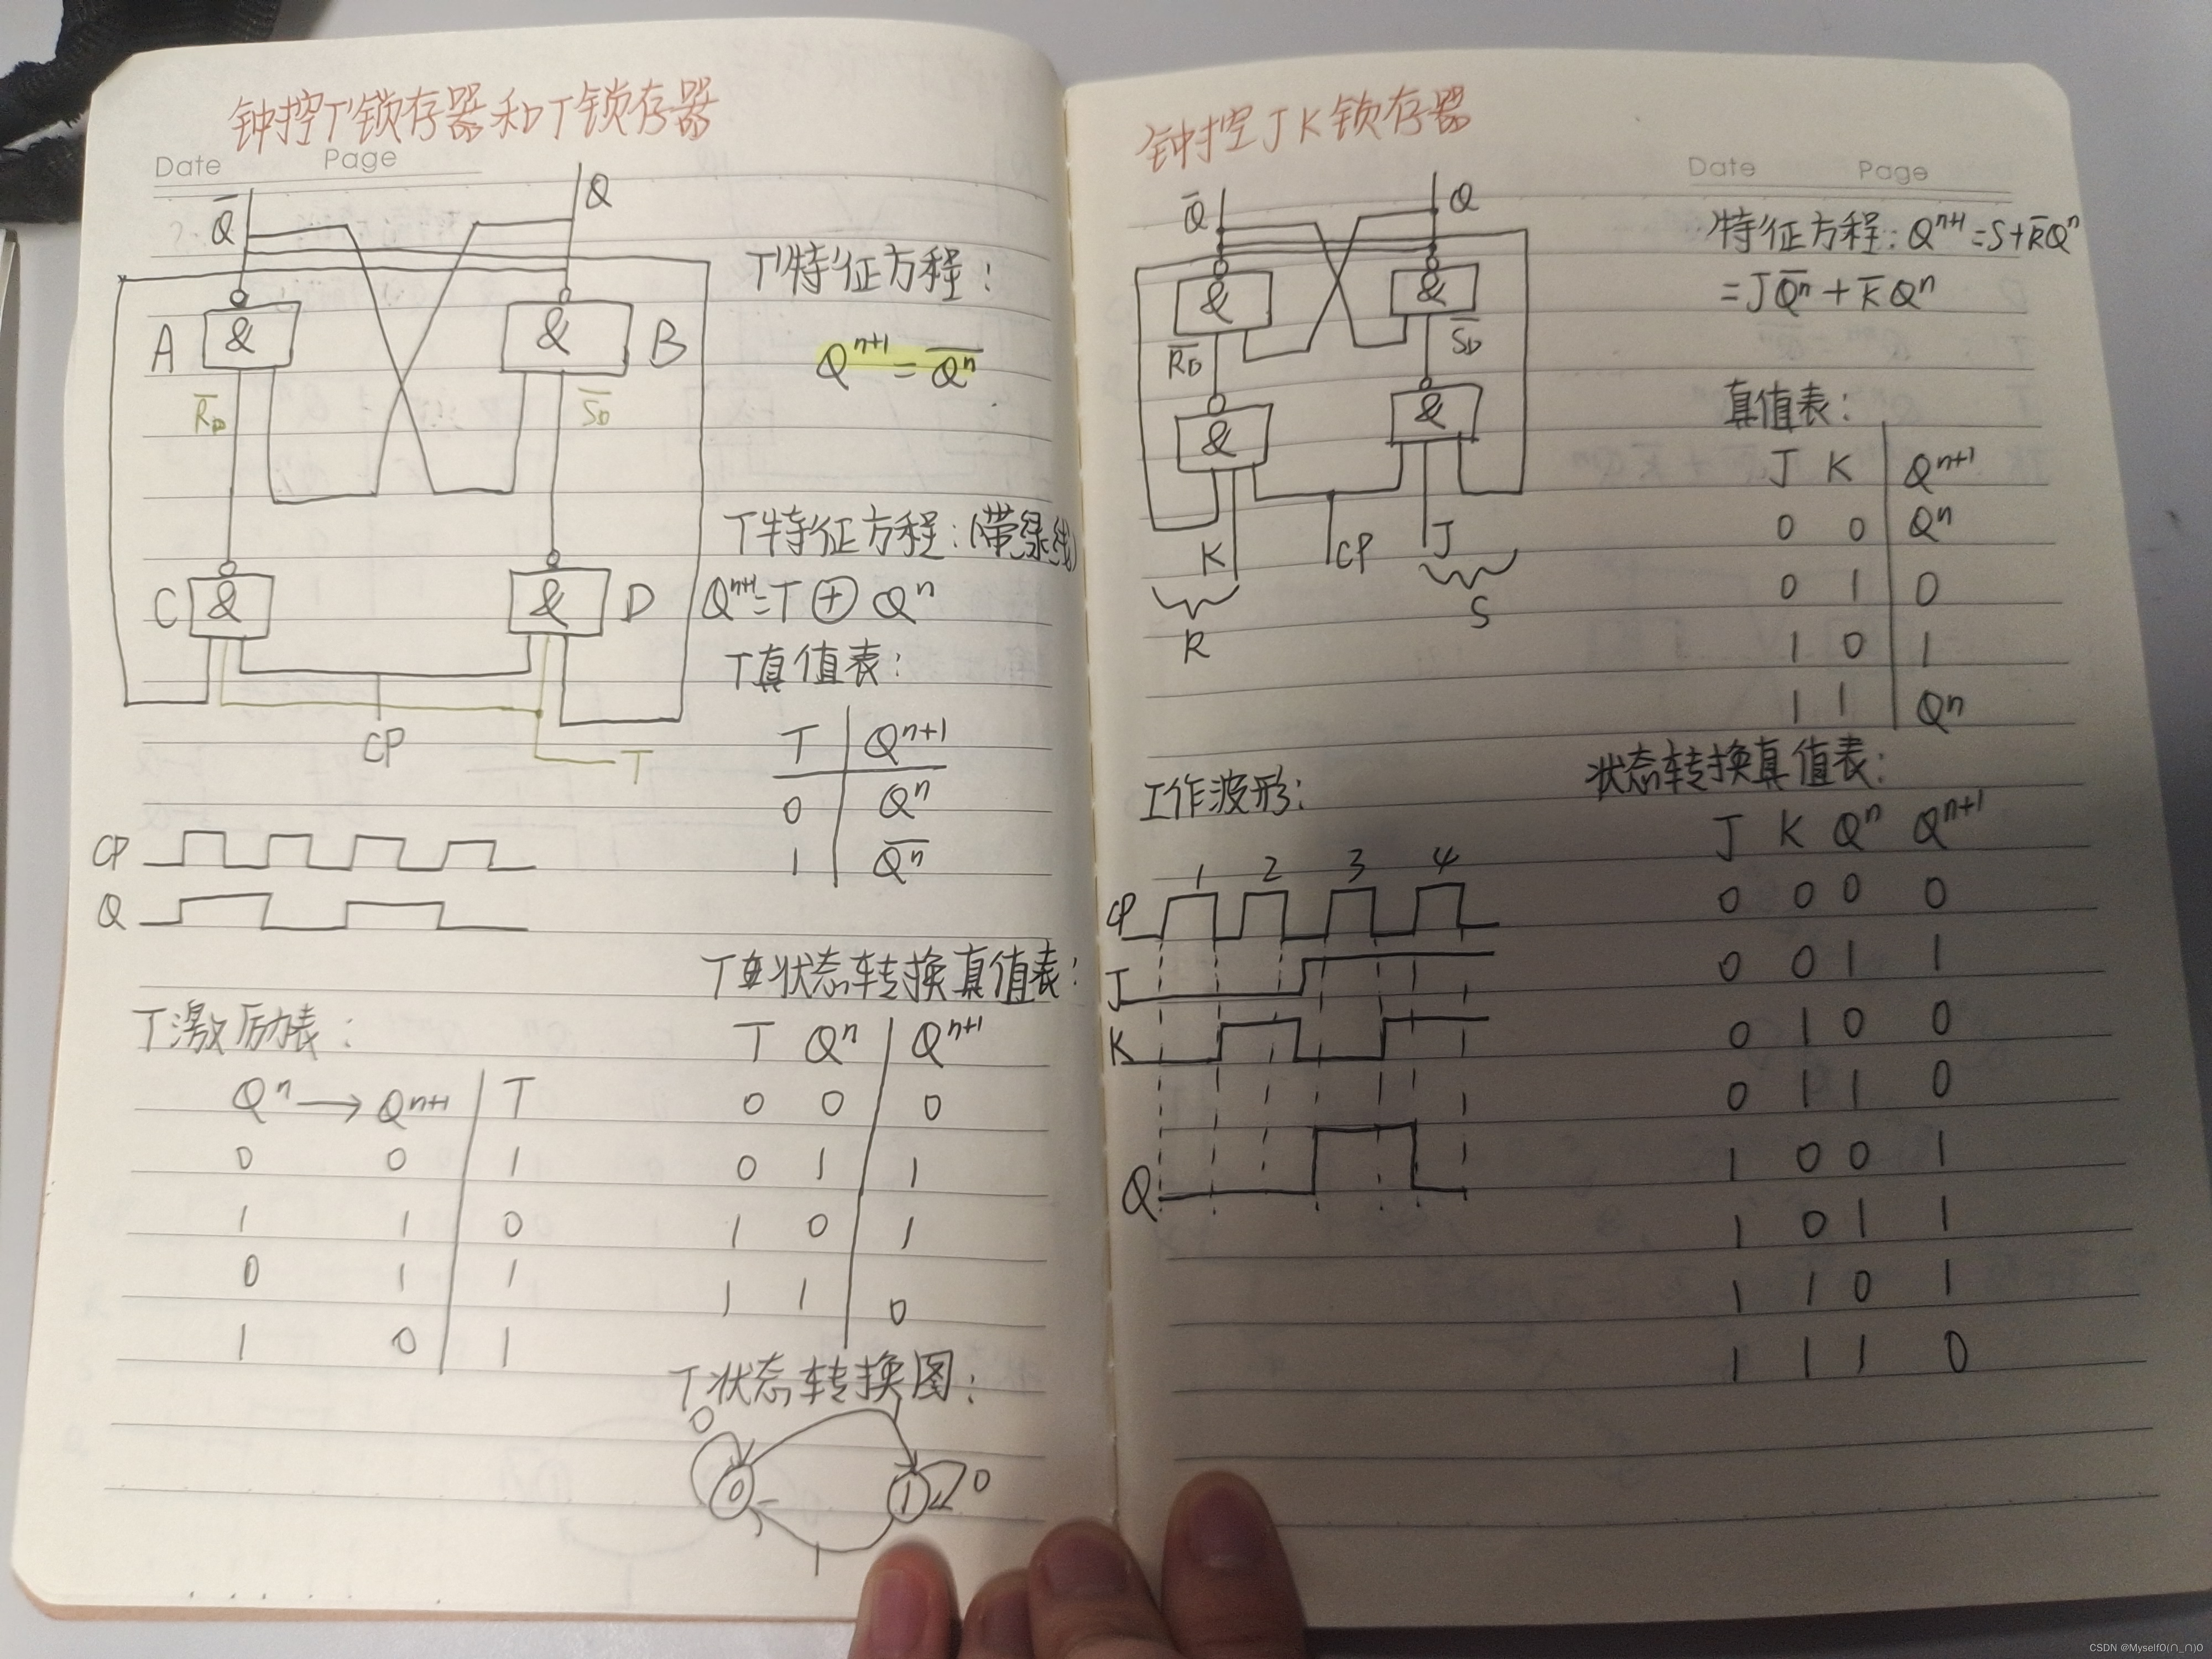 钟控T'锁存器和T锁存器
Date Page
Q̅ Q
T'特征方程：
A & & B
Qⁿ⁺¹ = Q̅ⁿ
R̅D S̅D
T特征方程：(带绿线)
C & & D
Qⁿ⁺¹=T⊕Qⁿ
T真值表：
CP T
T Qⁿ⁺¹
0 Qⁿ
1 Q̅ⁿ
CP
Q
T状态转换真值表：
T Qⁿ Qⁿ⁺¹
0 0 0
0 1 1
1 0 1
1 1 0
T激励表：
Qⁿ → Qⁿ⁺¹ T
0 0 1
1 1 0
0 1 1
1 0 1
T状态转换图：
0 1
0 1 0
1
钟控JK锁存器
Date Page
Q̅ Q
& &
R̅D S̅D
& &
K CP J
R S
特征方程：Qⁿ⁺¹=S+R̅Qⁿ
=JQ̅ⁿ+K̅Qⁿ
真值表：
J K Qⁿ⁺¹
0 0 Qⁿ
0 1 0
1 0 1
1 1 Qⁿ
工作波形：
1 2 3 4
CP
J
K
Q
状态转换真值表：
J K Qⁿ Qⁿ⁺¹
0 0 0 0
0 0 1 1
0 1 0 0
0 1 1 0
1 0 0 1
1 0 1 1
1 1 0 1
1 1 1 0
CSDN @Myself0(∩_∩)0